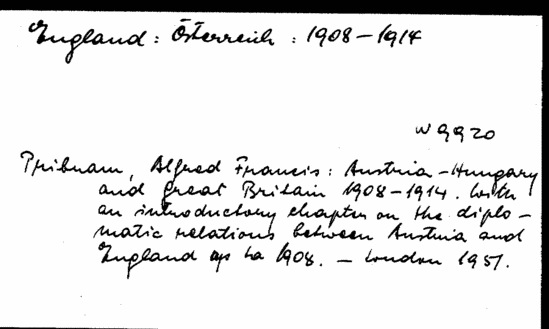 England: Österreich : 1908-1914
W 9920
Pribram, Alfred Francis: Austria-Hungary
and Great Britain 1908-1914. With
an introductory chapter on the diplo-
matic relations between Austria and
England up to 1908. - London 1951.